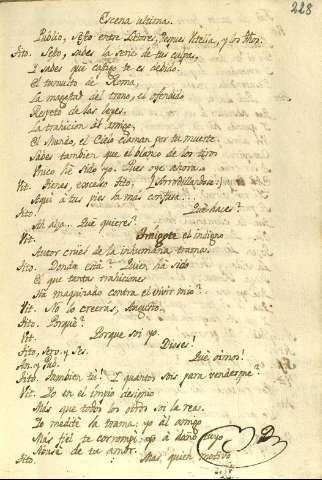 228
Escena ultima.
Publio, Sesto entre Lictores, Despues Vitelia, y los dhos.
Tito. Sesto, sabes la serie de tus culpas,
Y sabes qué castigo te es debido.
El tumulto de Roma,
La magestad del trono, el ofendido
Respeto de las leyes,
La trahicion del amigo,
El Mundo, el Cielo claman por tu muerte.
Sabes tambien que el blanco de los tiros
Unico hé sido yo. Pues oye ahora.
Vit. Tienes, excelso Tito, (Arrodillandose)
Aqui á tus pies la mas confusa...
Tito. Qué haces?
Ah alza... Qué quieres?
Vit. el indigno
Autor cruel de la inhumana trama.
Tito. Donde está? Quien há sido
El que tantas trahiciones
Há maquinado contra el vivir mio?
Vit. No lo creerás, Augusto.
Tito. Porqué?
Vit. Porque soi yo.
Tito, Serv. y Ses. Dioses!
An. y Pub. Qué oimos!
Tito. Tambien tú! Y quantos sois para venderme?
Vit. Yo en el impio designio
Mas que todos los otros soi la rea.
Yo medité la trama; yo al amigo
Mas fiel te corrompí; yo á daño tuyo
Abusé de tu amor.
Tito. Mas, quien motivo